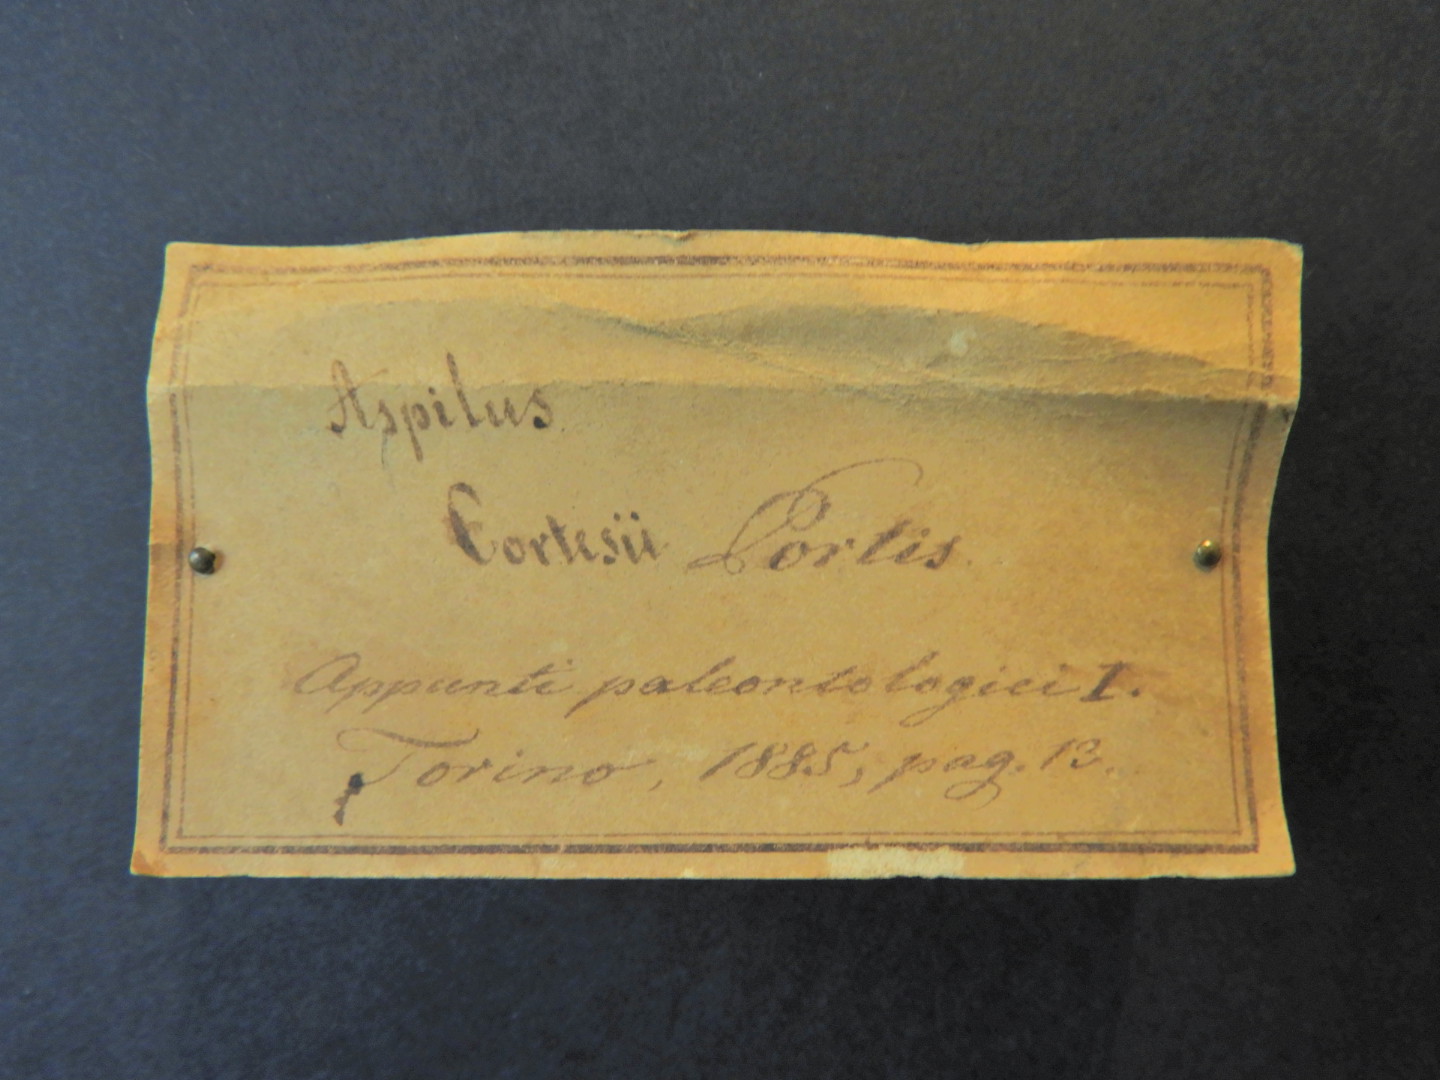 Aspilus
Cortesii Portis
Appunti paleontologici I.
Torino, 1885, pag. 13.